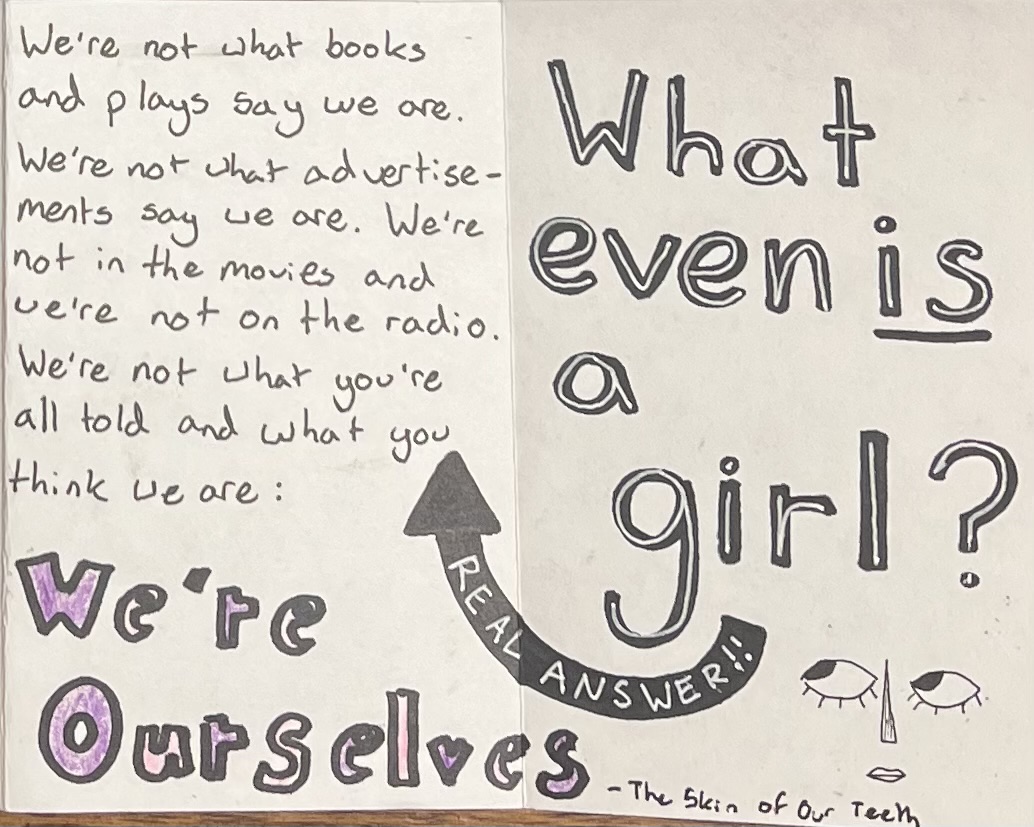 We're not what books
and plays say we are.
We're not what advertise-
ments say we are. We're
not in the movies and
we're not on the radio.
We're not what you're
all told and what you
think we are:
We're
Ourselves
What
even is
a
girl?
REAL ANSWER!!
- The Skin of Our Teeth